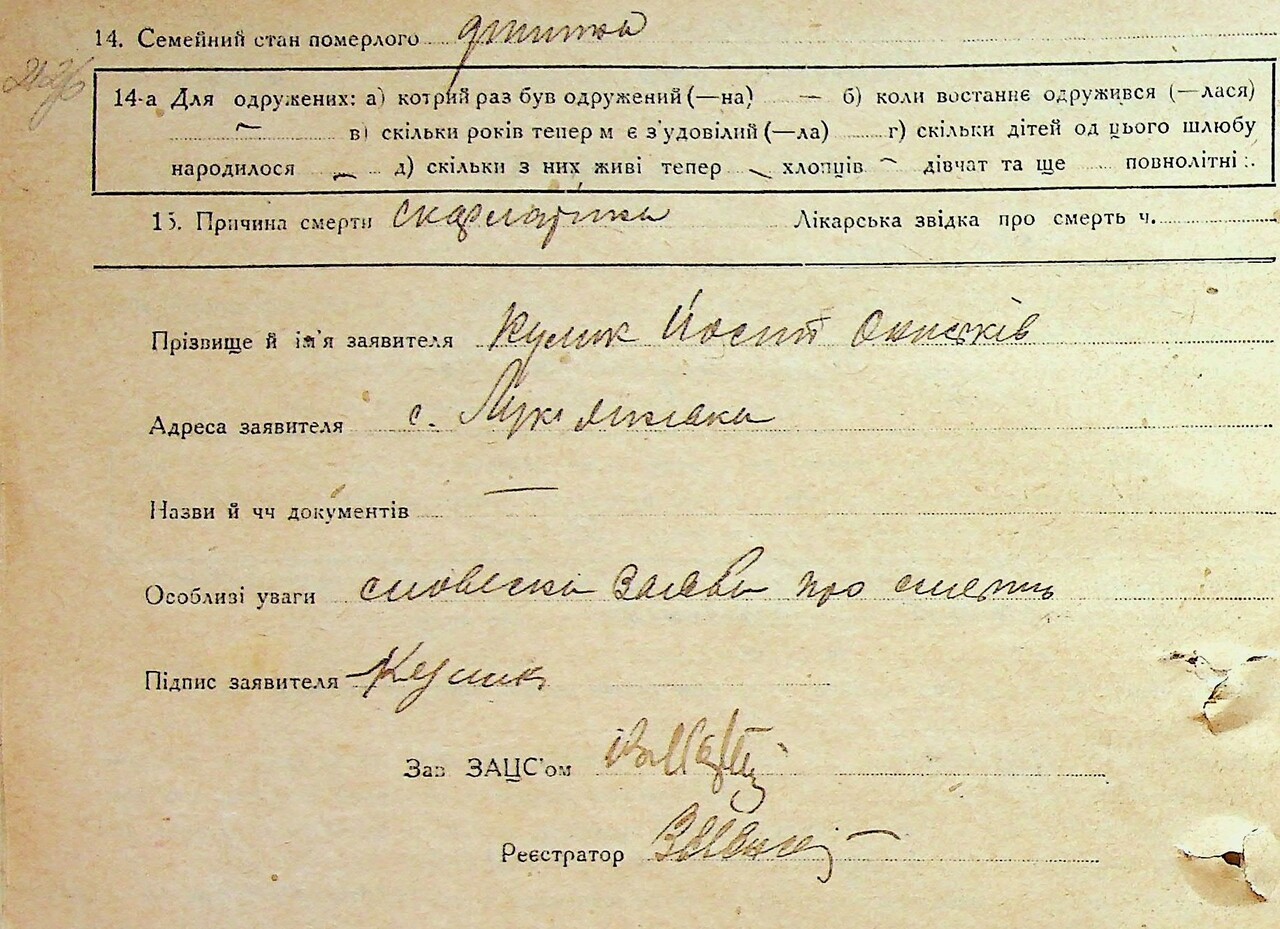 14. Семейний стан померлого дитина
14-а Для одружених: а) котрий раз був одружений (—на) — б) коли востаннє одружився (—лася)
в) скільки років тепер м є з'удовілий (—ла) г) скільки дітей од цього шлюбу
народилося — д) скільки з них живі тепер хлопців дівчат та ще повнолітні
15. Причина смерти скарлатіна Лікарська звідка про смерть ч.
Прізвище й ім'я заявителя Кулик Йосип
Адреса заявителя с.
Назви й чч документів —
Особливі уваги словеска заява про смерть
Підпис заявителя Кулик
Зав ЗАЦС'ом
Реєстратор